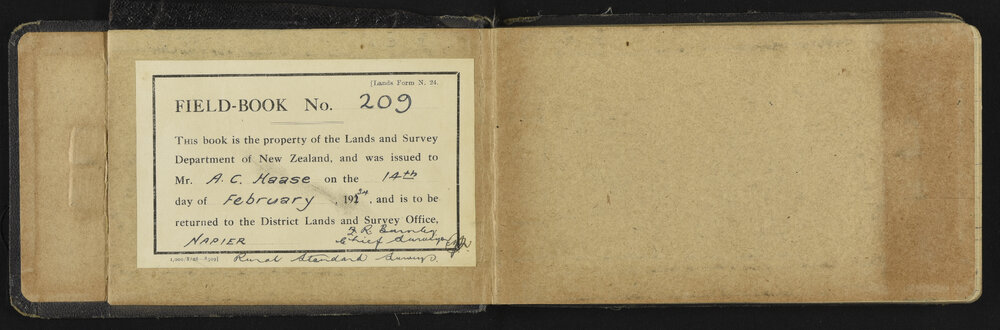 [Lands Form N. 24.
FIELD-BOOK No. 209
THIS book is the property of the Lands and Survey
Department of New Zealand, and was issued to
Mr. A. C. Haase on the 14th
day of February, 192 34, and is to be
returned to the District Lands and Survey Office,
NAPIER
Chief Surveyor
Rural Standard Surveys.